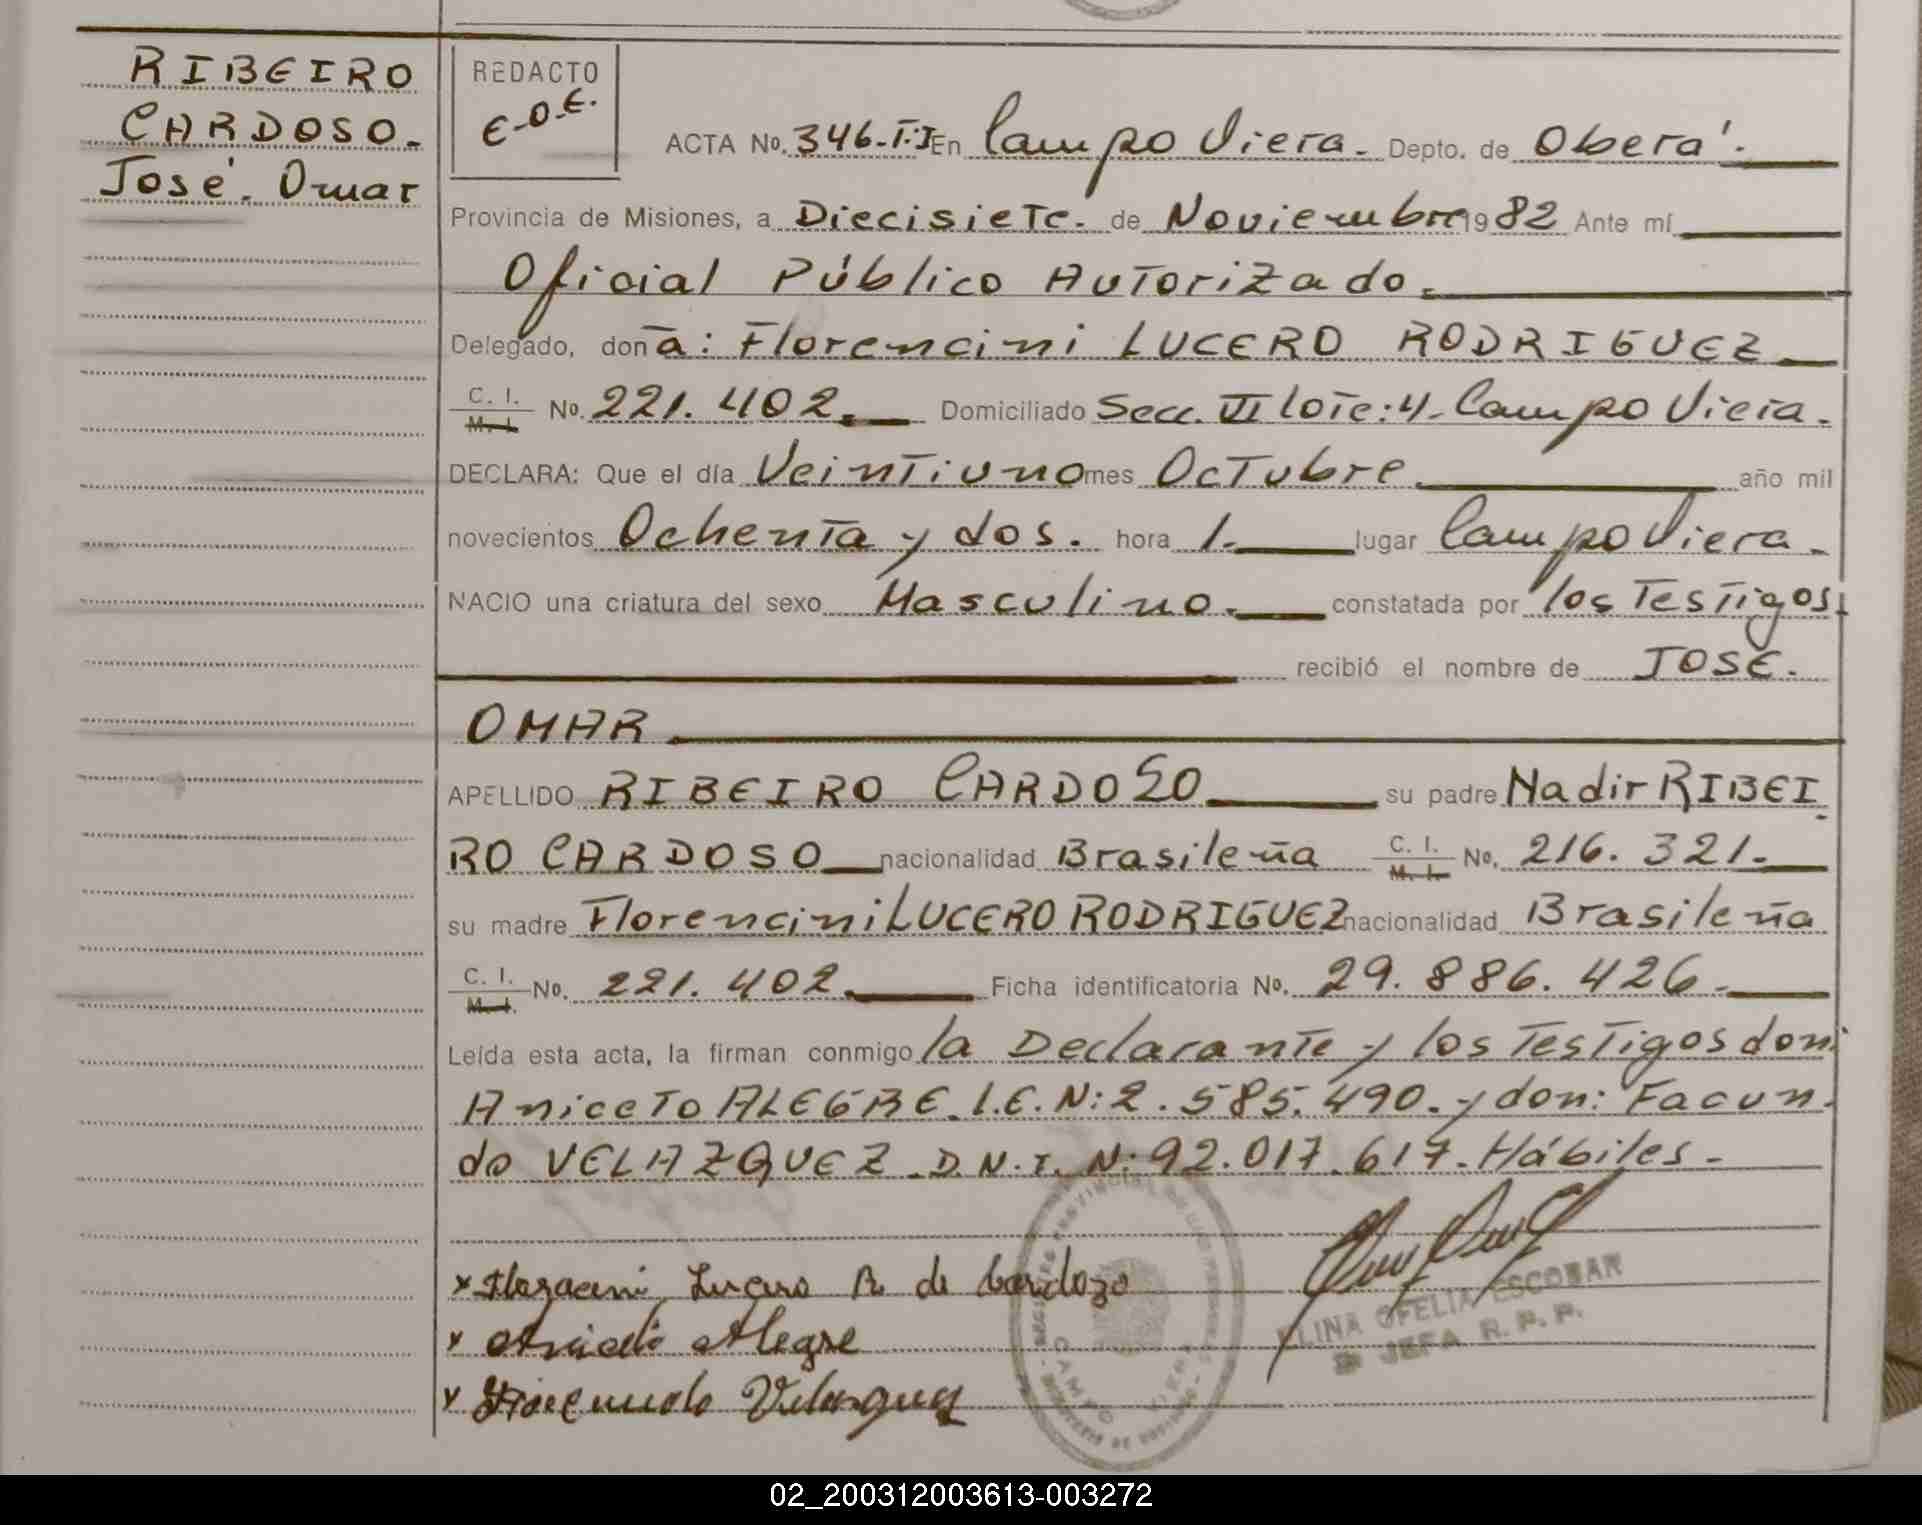 RIBEIRO
CARDOSO.
José. Omar
REDACTO
E-O-E.
ACTA No. 346-T:I En Campo Viera. Depto. de Oberá.
Provincia de Misiones, a Diecisiete. de Noviembre 1982 Ante mí
Oficial Público Autorizado.
Delegado, don a: Florencini LUCERO RODRIGUEZ
C. I. M. I. No. 221.402. Domiciliado Secc. VI lote:4. Campo Viera.
DECLARA: Que el día Veintiuno mes Octubre año mil
novecientos Ochenta y dos. hora 1. lugar Campo Viera.
NACIO una criatura del sexo Masculino. constatada por los Testigos.
recibió el nombre de JOSÉ.
OMAR
APELLIDO RIBEIRO CARDOSO su padre Nadir RIBEI
RO CARDOSO nacionalidad Brasileña C. I. M. I. No. 216.321.
su madre Florencini LUCERO RODRIGUEZ nacionalidad Brasileña
C. I. M. I. No. 221.402. Ficha identificatoria No. 29.886.426.
Leída esta acta, la firman conmigo la Declarante y los Testigos don:
Aniceto ALEGRE. L.E. N: 2.585.490. y don: Facun
do VELAZQUEZ. D.N.I. N: 92.017.617. Hábiles.
x Lucero R de Cardozo
x Alegre
x Velazquez
ELINA OFELIA ESCOBAR
JEFA R. P. P.
CAMPO VIERA
02_200312003613-003272